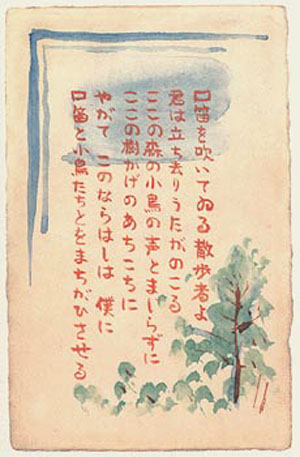 口笛を吹いてゐる散歩者よ
君は立ち去りうたがのこる
ここの森の小鳥の声とまじらずに
ここの樹かげのあちこちに
やがて このならはしは 僕に
口笛と小鳥たちとをまちがひさせる